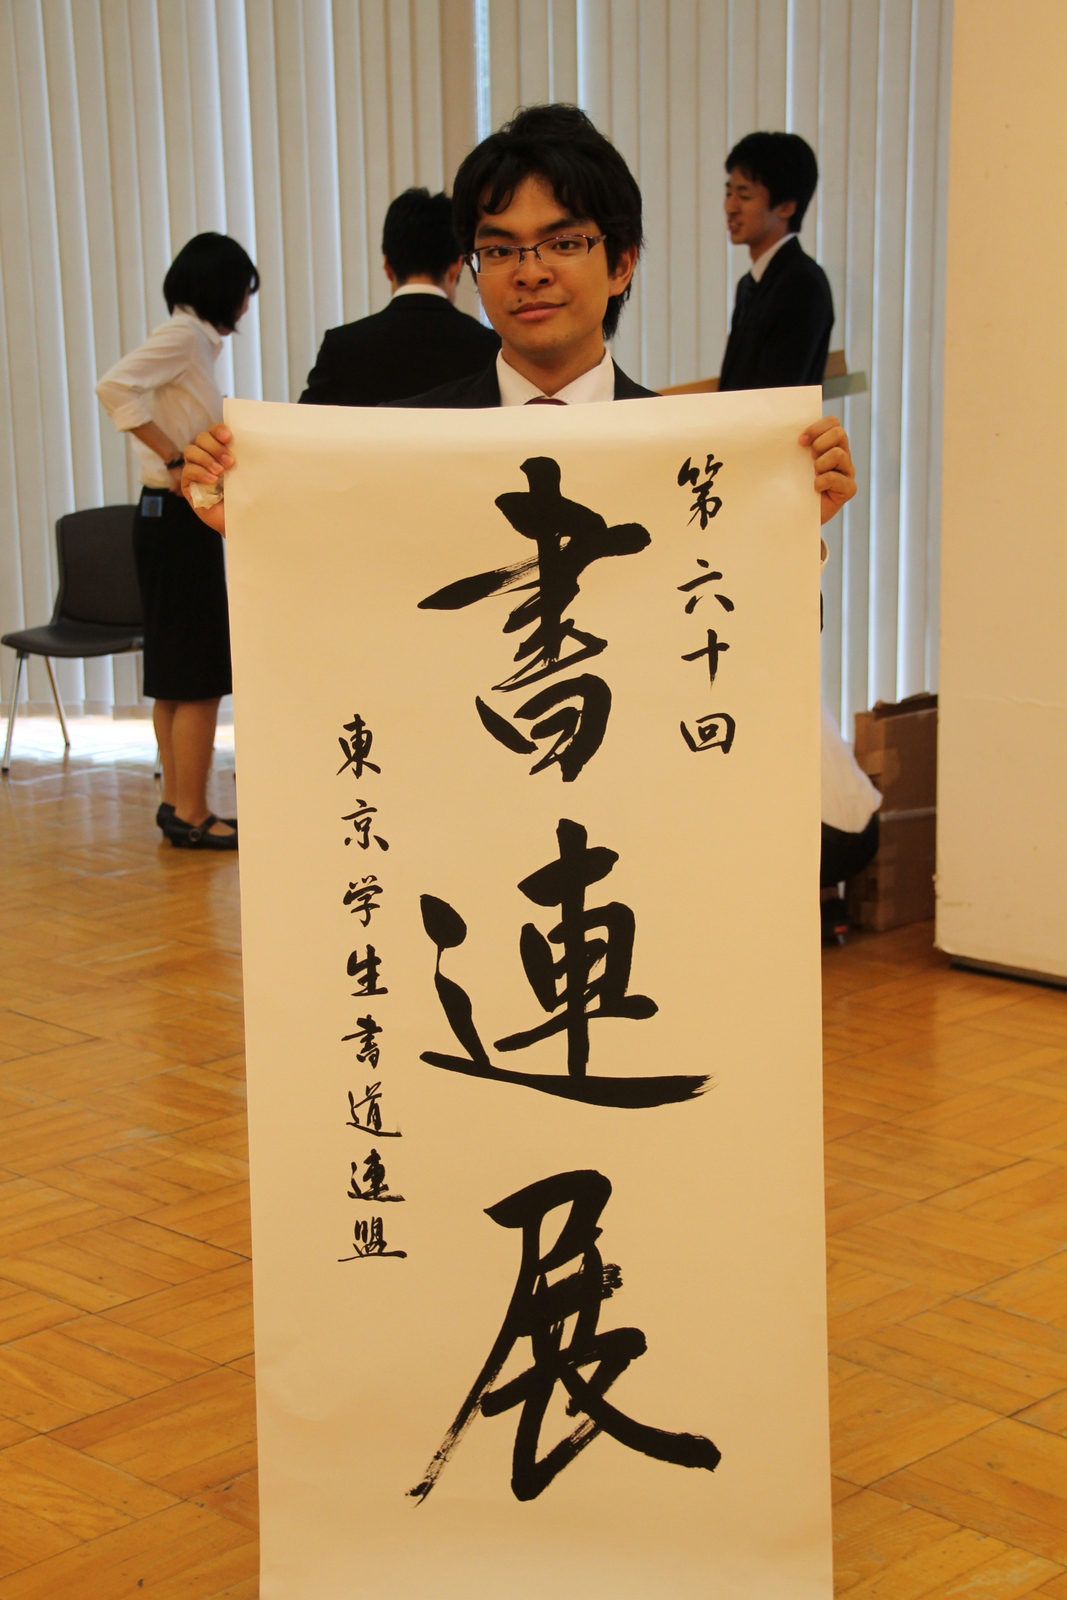 第六十回
書連展
東京学生書道連盟